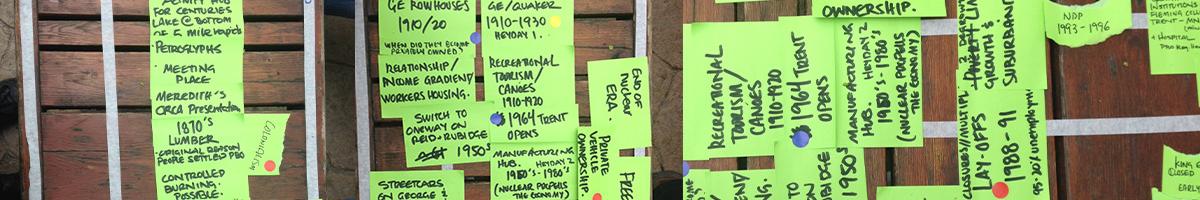 ACTIVITY HUB
FOR CENTURIES
LAKE @ BOTTOM
OF 5 MILE RAPIDS
PETROGLYPHS
MEETING
PLACE
MEREDITH'S
ORCA Presentation
1870'S
LUMBER
ORIGINAL REASON
PEOPLE SETTLED PBO
COLONIALISM
CONTROLLED
BURNING.
POSSIBLE.
GE ROWHOUSES
1910/20
WHEN DID THEY BECOME
PRIVATELY OWNED?
RELATIONSHIP/
INCOME GRADIENT/
WORKERS HOUSING.
SWITCH TO
ONEWAY ON
REID & RUBIDGE
1950'S
STREETCARS
ON GEORGE &
GE/QUAKER
1910-1930
HEYDAY 1.
RECREATIONAL
TOURISM/
CANOES
1910-1920
1964 TRENT
OPENS
MANUFACTURING
HUB. HEYDAY 2
1950'S-1980'S
(NUCLEAR PROPELLS
THE ECONOMY)
END OF
NUCLEAR
ERA.
PRIVATE
VEHICLE
OWNERSHIP.
FREE
OWNERSHIP.
RECREATIONAL
TOURISM/
CANOES
1910-1920
1964 TRENT
OPENS
MANUFACTURING
HUB. HEYDAY 2
1950'S-1980'S
(NUCLEAR PROPELLS
THE ECONOMY)
GROWTH &
SUBURBAN
NDP
1993-1996
INSTITUTIONS
FLEMING COLL
TRENT
HOSPITAL
END/
NG.
TO
ON
UBIDGE
1950'S
CLOSURES/MULTIPL
LAY-OFFS
1988-91
95-20% unemploym
KING
CLOSED
EARLY